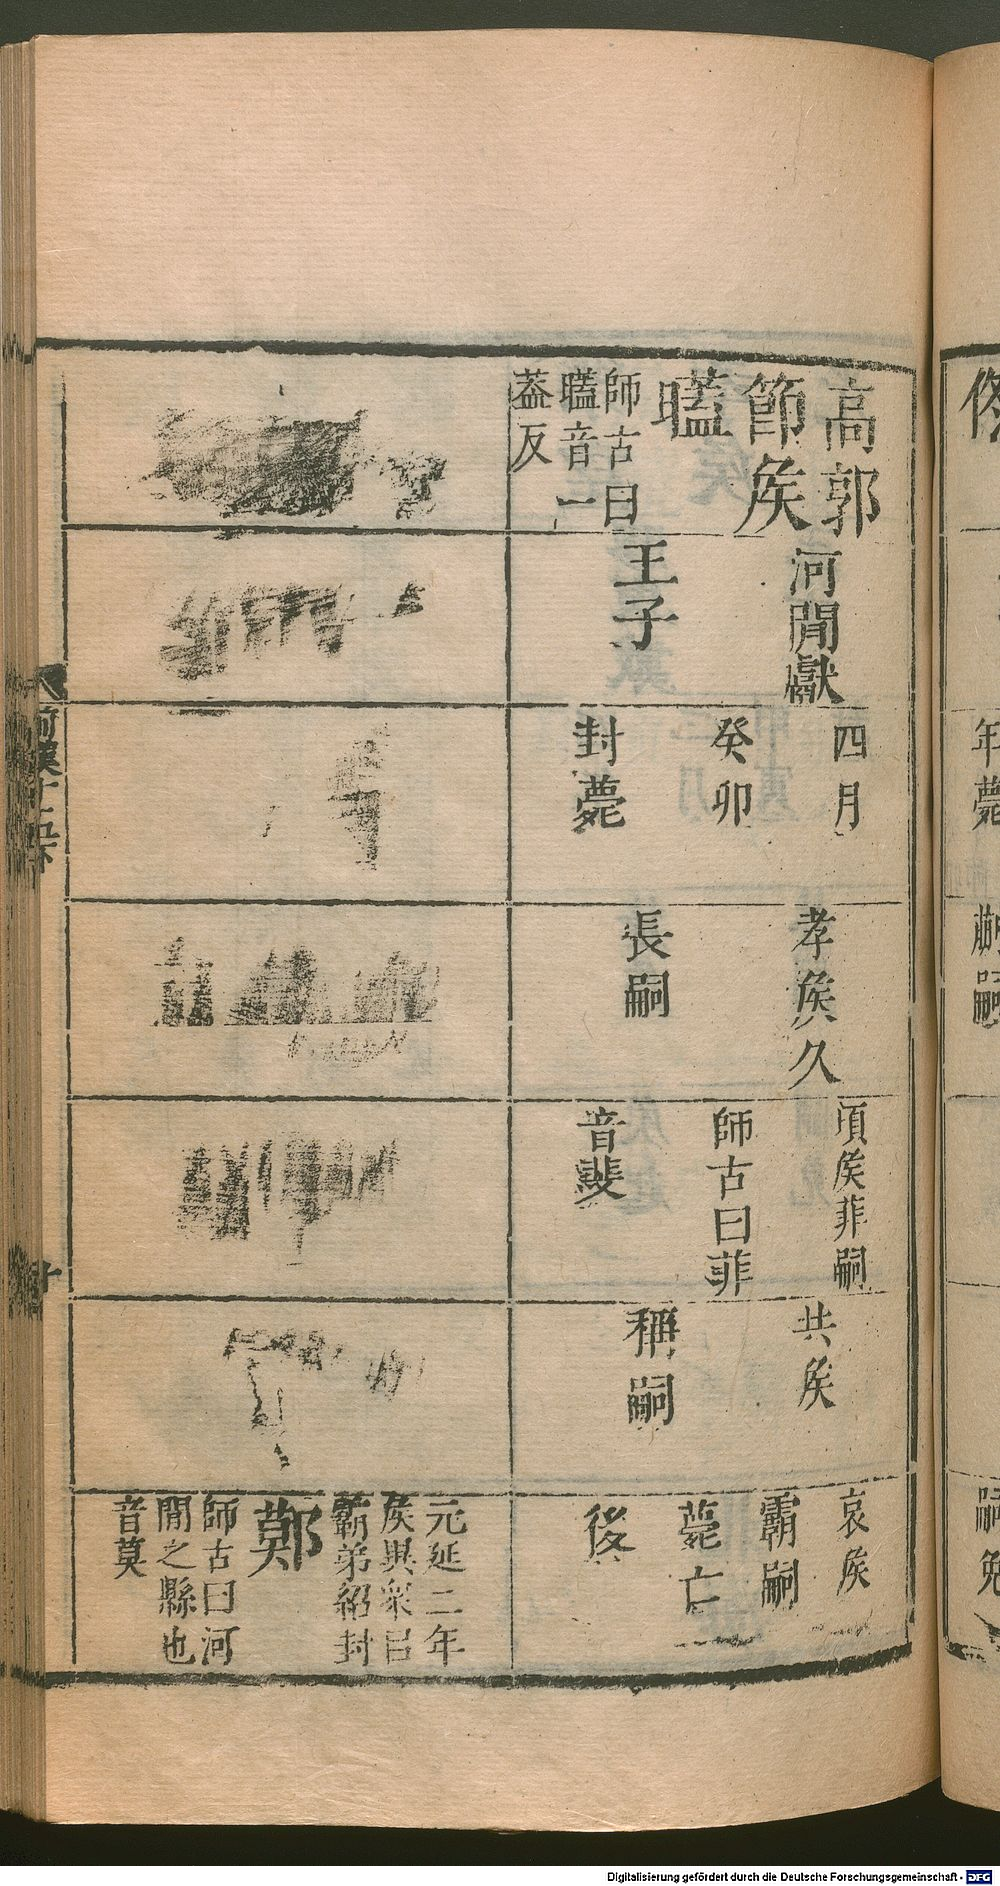 高郭
節矦
㬪
師古曰
㬪音一
葢反
河閒獻
王子
四月
癸卯
封薨
孝矦久
長嗣
頃矦菲嗣
師古曰菲
音斐
共矦
稱嗣
哀矦
霸嗣
薨亡
後
元延二年
矦異衆㠯
霸弟紹封
鄚
師古曰河
閒之縣也
音莫
前漢十五下
十
年薨
嗣免
Digitalisierung gefördert durch die Deutsche Forschungsgemeinschaft - DFG